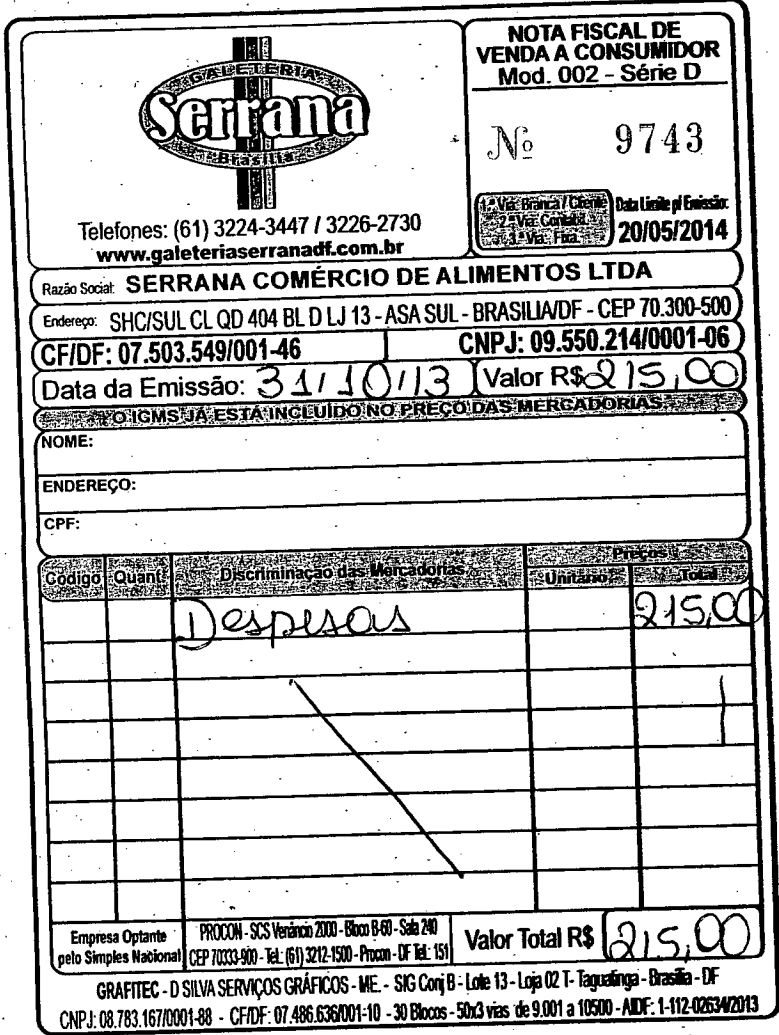 GALETERIA
Serrana
Brasília
Telefones: (61) 3224-3447 / 3226-2730
www.galeteriaserranadf.com.br
NOTA FISCAL DE
VENDA A CONSUMIDOR
Mod. 002 - Série D
Nº 9743
1.ª Via: Branca / Cliente
2.ª Via: Contabil.
3.ª Via: Fixa.
Data Limite p/ Emissão:
20/05/2014
Razão Social: SERRANA COMÉRCIO DE ALIMENTOS LTDA
Endereço: SHC/SUL CL QD 404 BL D LJ 13 - ASA SUL - BRASILIA/DF - CEP 70.300-500
CF/DF: 07.503.549/001-46 CNPJ: 09.550.214/0001-06
Data da Emissão: 31/10/13 Valor R$ 215,00
O ICMS JÁ ESTÁ INCLUÍDO NO PREÇO DAS MERCADORIAS
NOME:
ENDEREÇO:
CPF:
Preços
Código Quant. Discriminação das Mercadorias Unitário Total
Despesas 215,00
Empresa Optante
pelo Simples Nacional
PROCON - SCS Venâncio 2000 - Bloco B-60 - Sala 240
CEP 70333-900 - Tel.: (61) 3212-1500 - Procon - DF Tel.: 151
Valor Total R$ 215,00
GRAFITEC - D SILVA SERVIÇOS GRÁFICOS - ME. - SIG Conj B - Lote 13 - Loja 02 T - Taguatinga - Brasília - DF
CNPJ: 08.783.167/0001-88 - CF/DF: 07.486.636/001-10 - 30 Blocos - 50x3 vias de 9.001 a 10500 - AIDF: 1-112-02634/2013